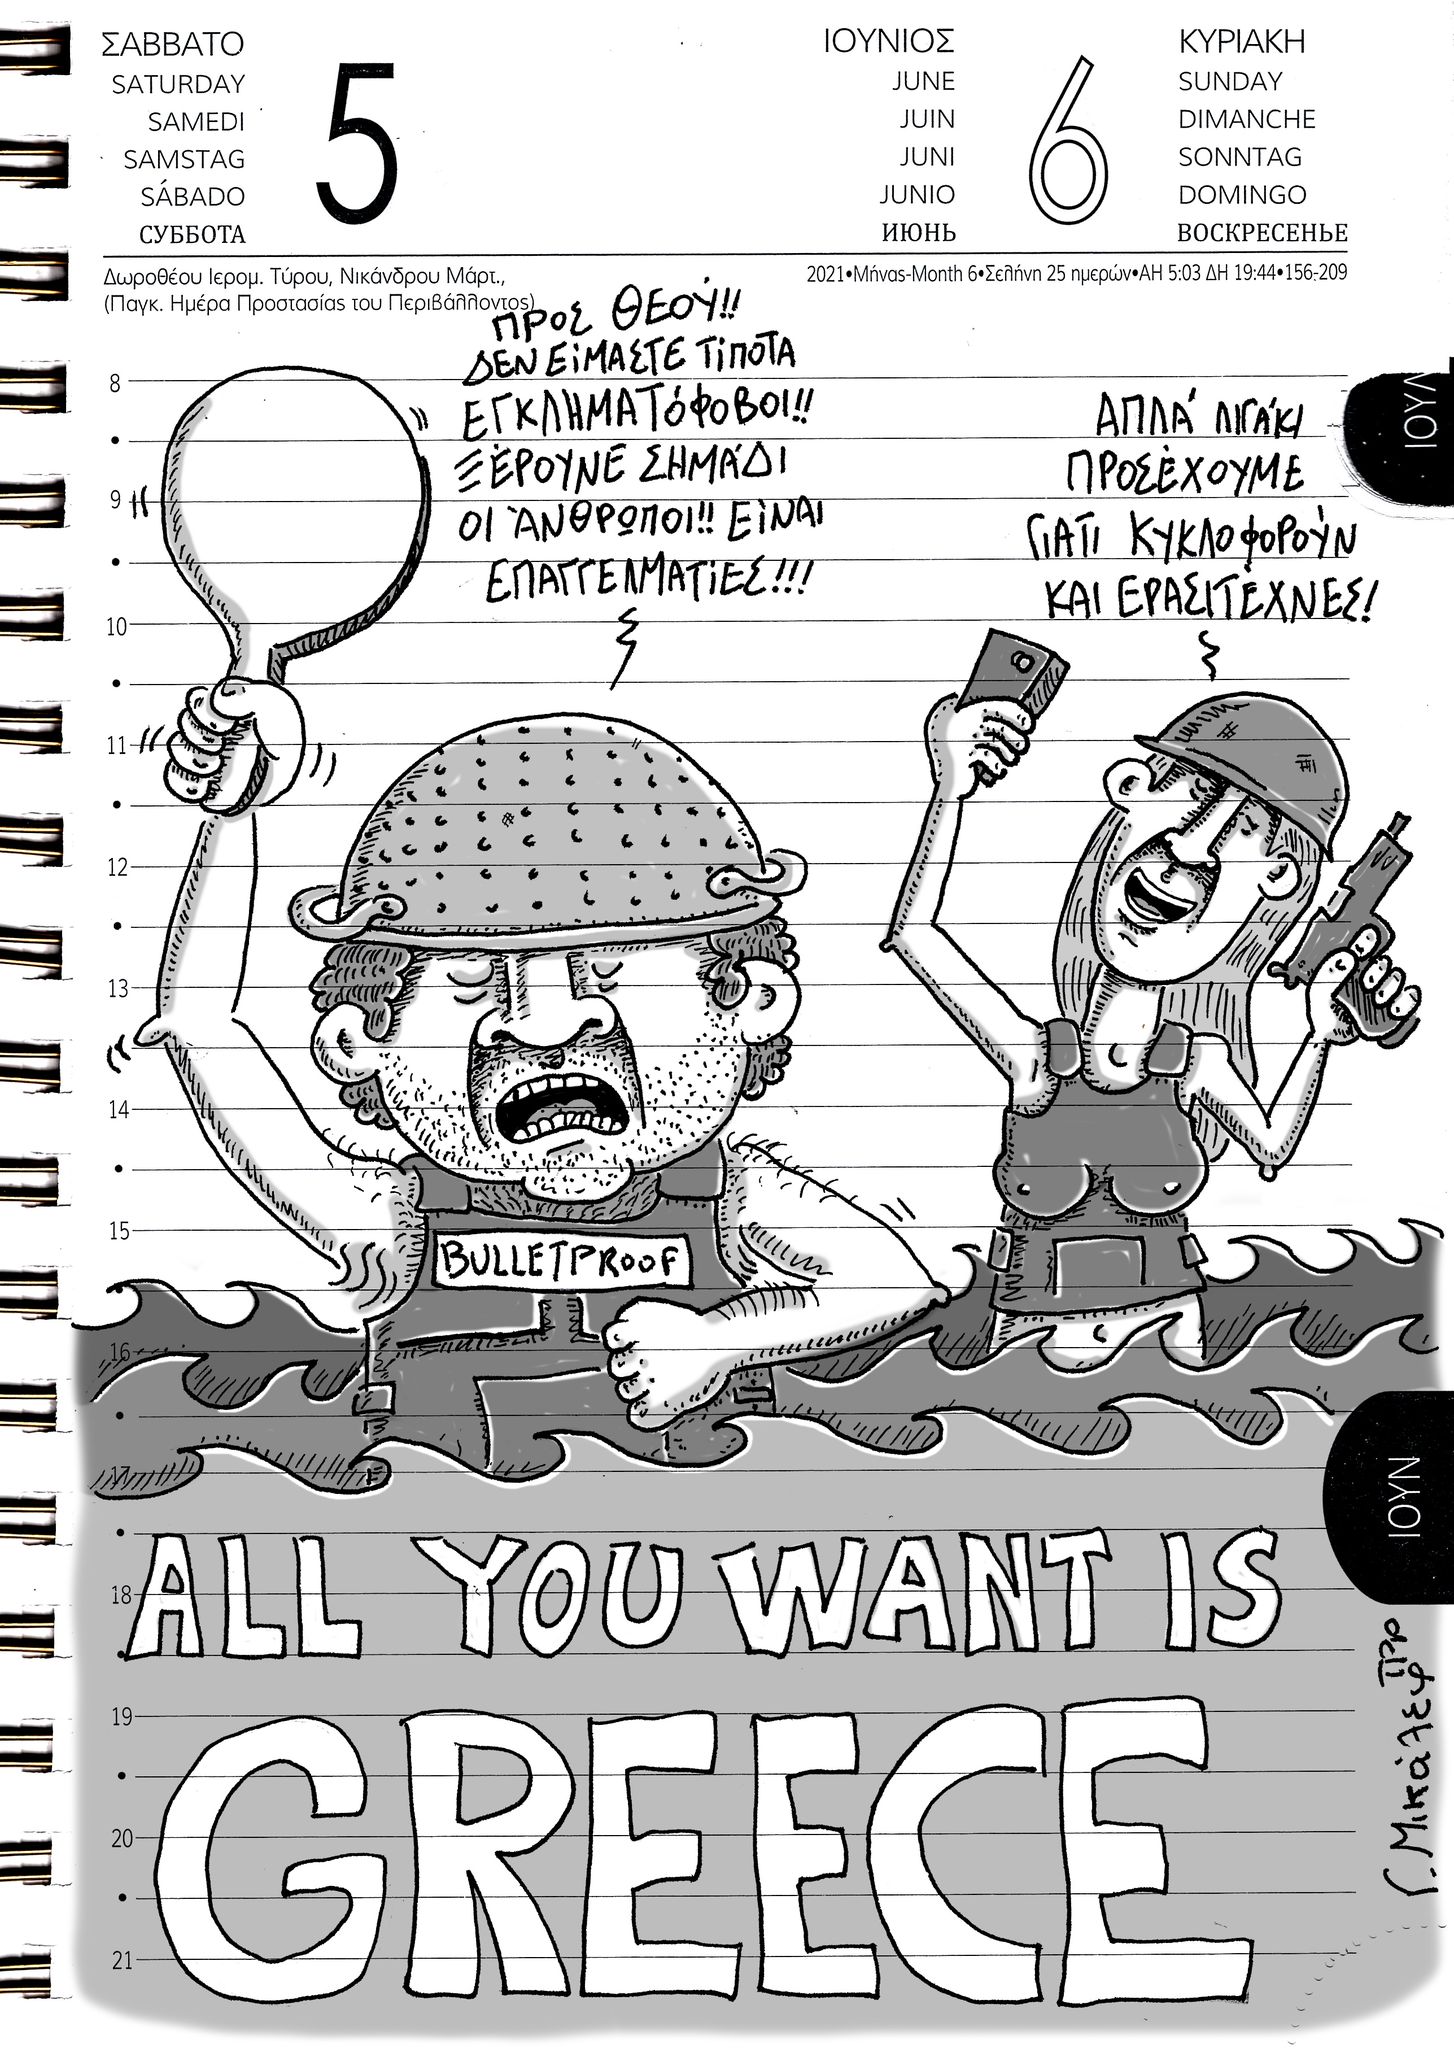 ΣΑΒΒΑΤΟ
SATURDAY
SAMEDI
SAMSTAG
SÁBADO
СУББОТА
5
ΙΟΥΝΙΟΣ
JUNE
JUIN
JUNI
JUNIO
ИЮНЬ
6
ΚΥΡΙΑΚΗ
SUNDAY
DIMANCHE
SONNTAG
DOMINGO
ВОСКРЕСЕНЬЕ
Δωροθέου Ιερομ. Τύρου, Νικάνδρου Μάρτ.,
(Παγκ. Ημέρα Προστασίας του Περιβάλλοντος)
2021•Μήνας-Month 6•Σελήνη 25 ημερών•ΑΗ 5:03 ΔΗ 19:44•156-209
ΠΡΟΣ ΘΕΟΎ!!
ΔΕΝ ΕΊΜΑΣΤΕ ΤΊΠΟΤΑ
ΕΓΚΛΗΜΑΤΌΦΟΒΟΙ!!
ΞΈΡΟΥΝΕ ΣΗΜΆΔΙ
ΟΙ ΆΝΘΡΩΠΟΙ!! ΕΊΝΑΙ
ΕΠΑΓΓΕΛΜΑΤΊΕΣ!!!
ΑΠΛΆ ΛΙΓΆΚΙ
ΠΡΟΣΈΧΟΥΜΕ
ΓΙΑΤΙ ΚΥΚΛΟΦΟΡΟΎΝ
ΚΑΙ ΕΡΑΣΙΤΈΧΝΕΣ!
ΙΟΥΛ
8
9
10
11
12
13
14
15
16
17
18
19
20
21
BULLETPROOF
ΙΟΥΝ
ALL YOU WANT IS
GREECE
Γ. Μικάλεφ